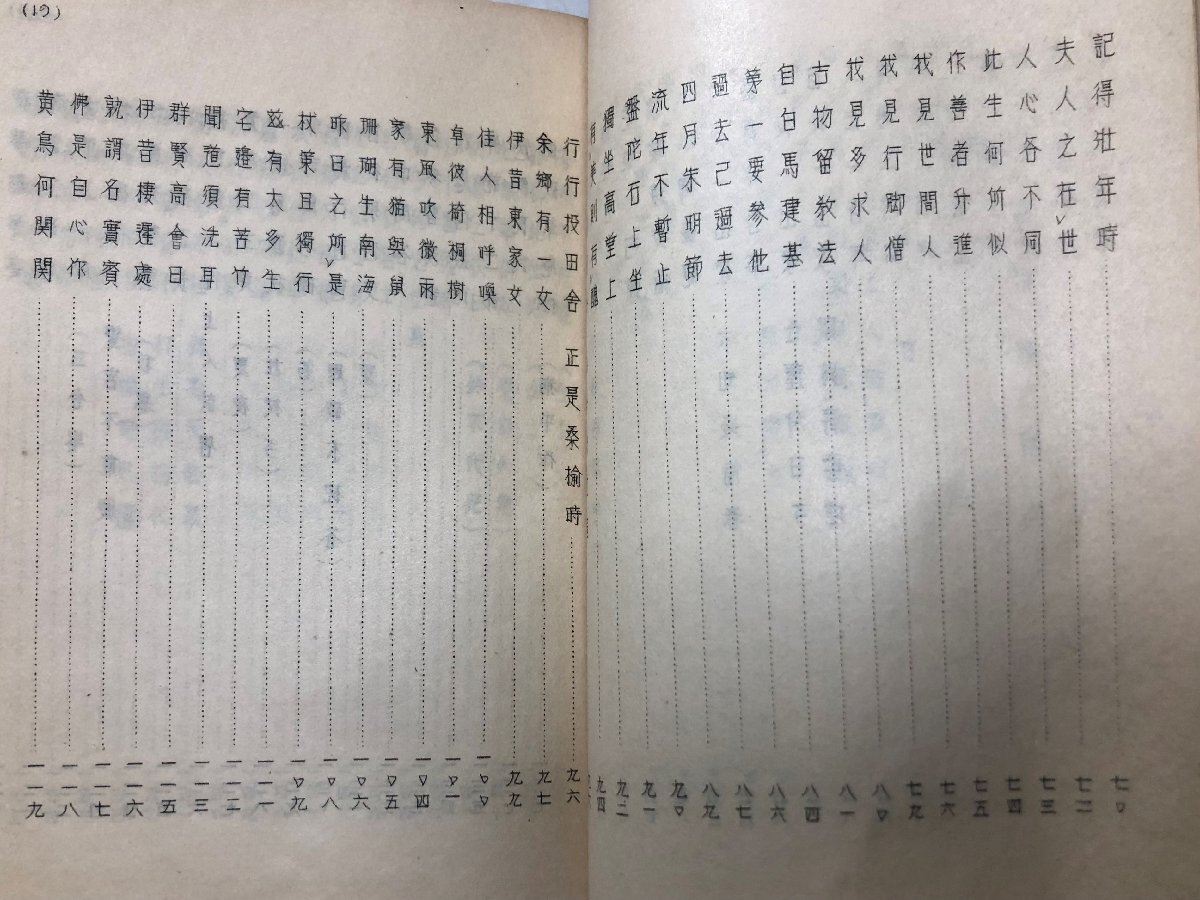 記得壮年時……七〇
夫人之在世……七二
人心各不同……七三
此生何所似……七四
作善者升進……七五
我見世間人……七六
我見行脚僧……七九
我見多求人……八〇
古物留教法……八一
自白馬建基……八四
第一要参他……八六
過去己過去……八七
四月朱明節……八九
流年不暫止……九〇
盤陀石上坐……九一
獨坐高堂上……九二
有美則有……九四
(19)
行行投田舍 正是桑榆時……九六
余郷有一女……九七
伊昔東家女……九九
佳人相呼喚……一〇〇
卓彼椅桐樹……一〇一
東風吹微雨……一〇四
家有猫與鼠……一〇五
珊瑚生南海……一〇六
昨日之所是……一〇八
杖策且獨行……一〇九
茲有太多生……一一一
宅邊有苦竹……一一二
聞道須洗耳……一一三
群賢高會日……一一五
伊昔棲遲處……一一六
孰謂名實賓……一一七
佛是自心作……一一八
黄鳥何関関……一一九